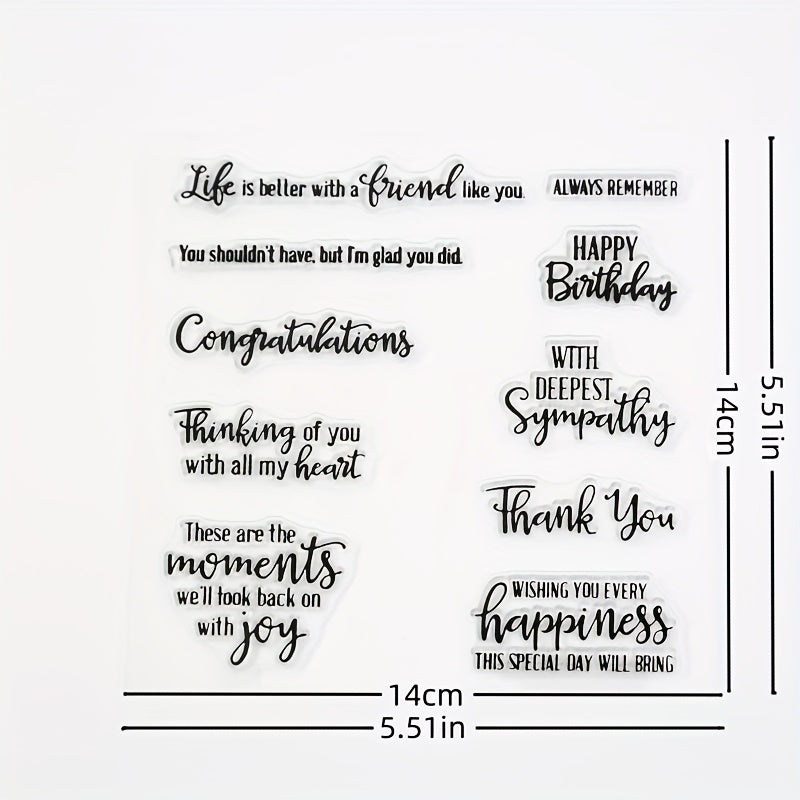 Life is better with a friend like you.
ALWAYS REMEMBER
You shouldn't have, but I'm glad you did.
HAPPY
Birthday
Congratulations
WITH
DEEPEST
Sympathy
Thinking of you
with all my heart
Thank You
These are the
moments
we'll look back on
with joy
WISHING YOU EVERY
happiness
THIS SPECIAL DAY WILL BRING
14cm
5.51in
14cm
5.51in